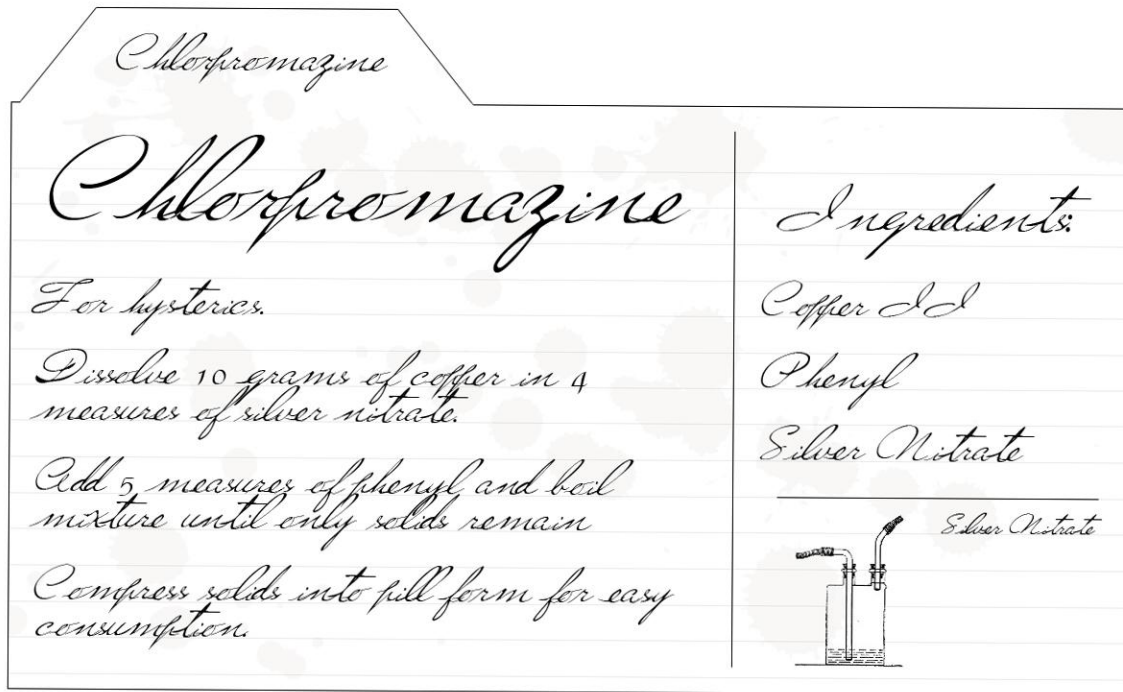 Chlorpromazine
Chlorpromazine
For hysterics.
Dissolve 10 grams of copper in 4
measures of silver nitrate.
Add 5 measures of phenyl and boil
mixture until only solids remain
Compress solids into pill form for easy
consumption.
Ingredients:
Copper II
Phenyl
Silver Nitrate
Silver Nitrate